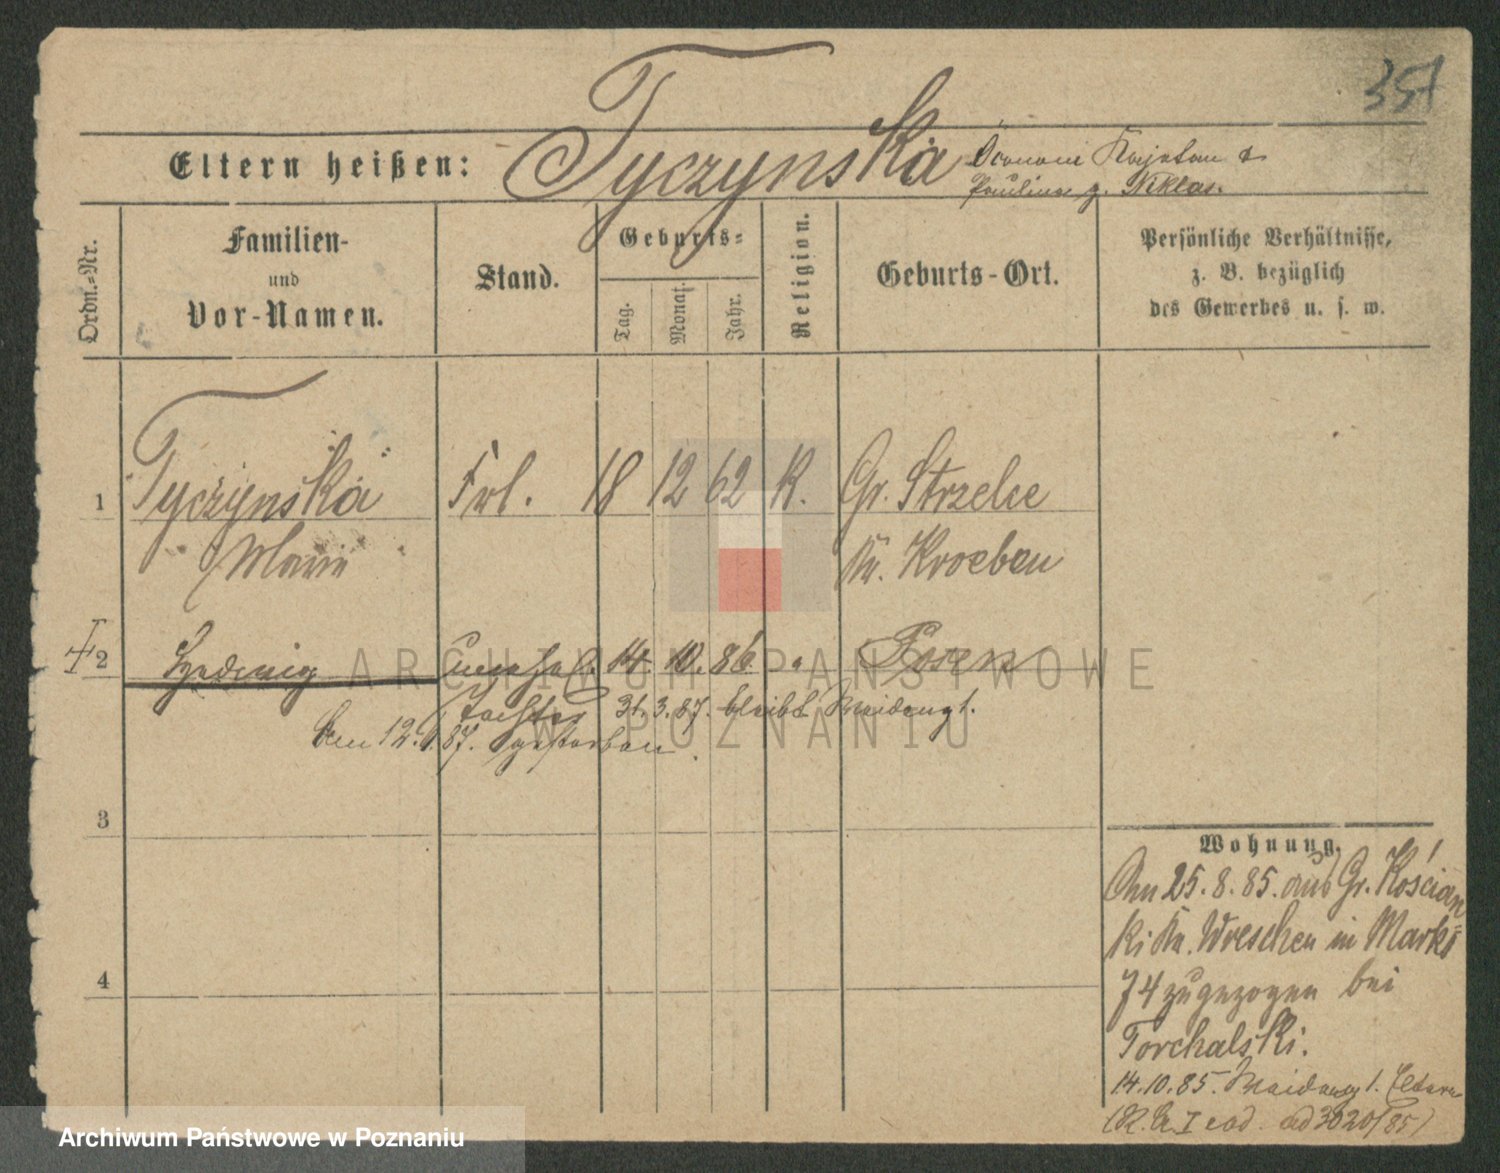 351
Eltern heißen: Tyczynska Öconom Kajetan &
Paulina g. Niklas.
Ordn.-Nr.
Familien-
und
Vor-Namen.
Stand.
Geburts-
Tag.
Monat.
Jahr.
Religion.
Geburts-Ort.
Persönliche Verhältnisse,
z. B. bezüglich
des Gewerbes u. s. w.
1 Tyczynska Frl. 18 12 62 K. Gr. Strzelce
Marie Kr. Kroeben
2 Hedwig unehel. 14 10. 86 Posen
Tochter 31. 3. 87. bleibt Maideng 1.
87. gestorben.
3
4
Wohnung.
Am 25. 8. 85. aus Gr. Kościan
ki Kr. Wreschen in Markt
74 zugezogen bei
Torchalski.
14. 10. 85. Maideng 1. Eltern
ad 3020/85)
ARCHIWUM PAŃSTWOWE
W POZNANIU
Archiwum Państwowe w Poznaniu